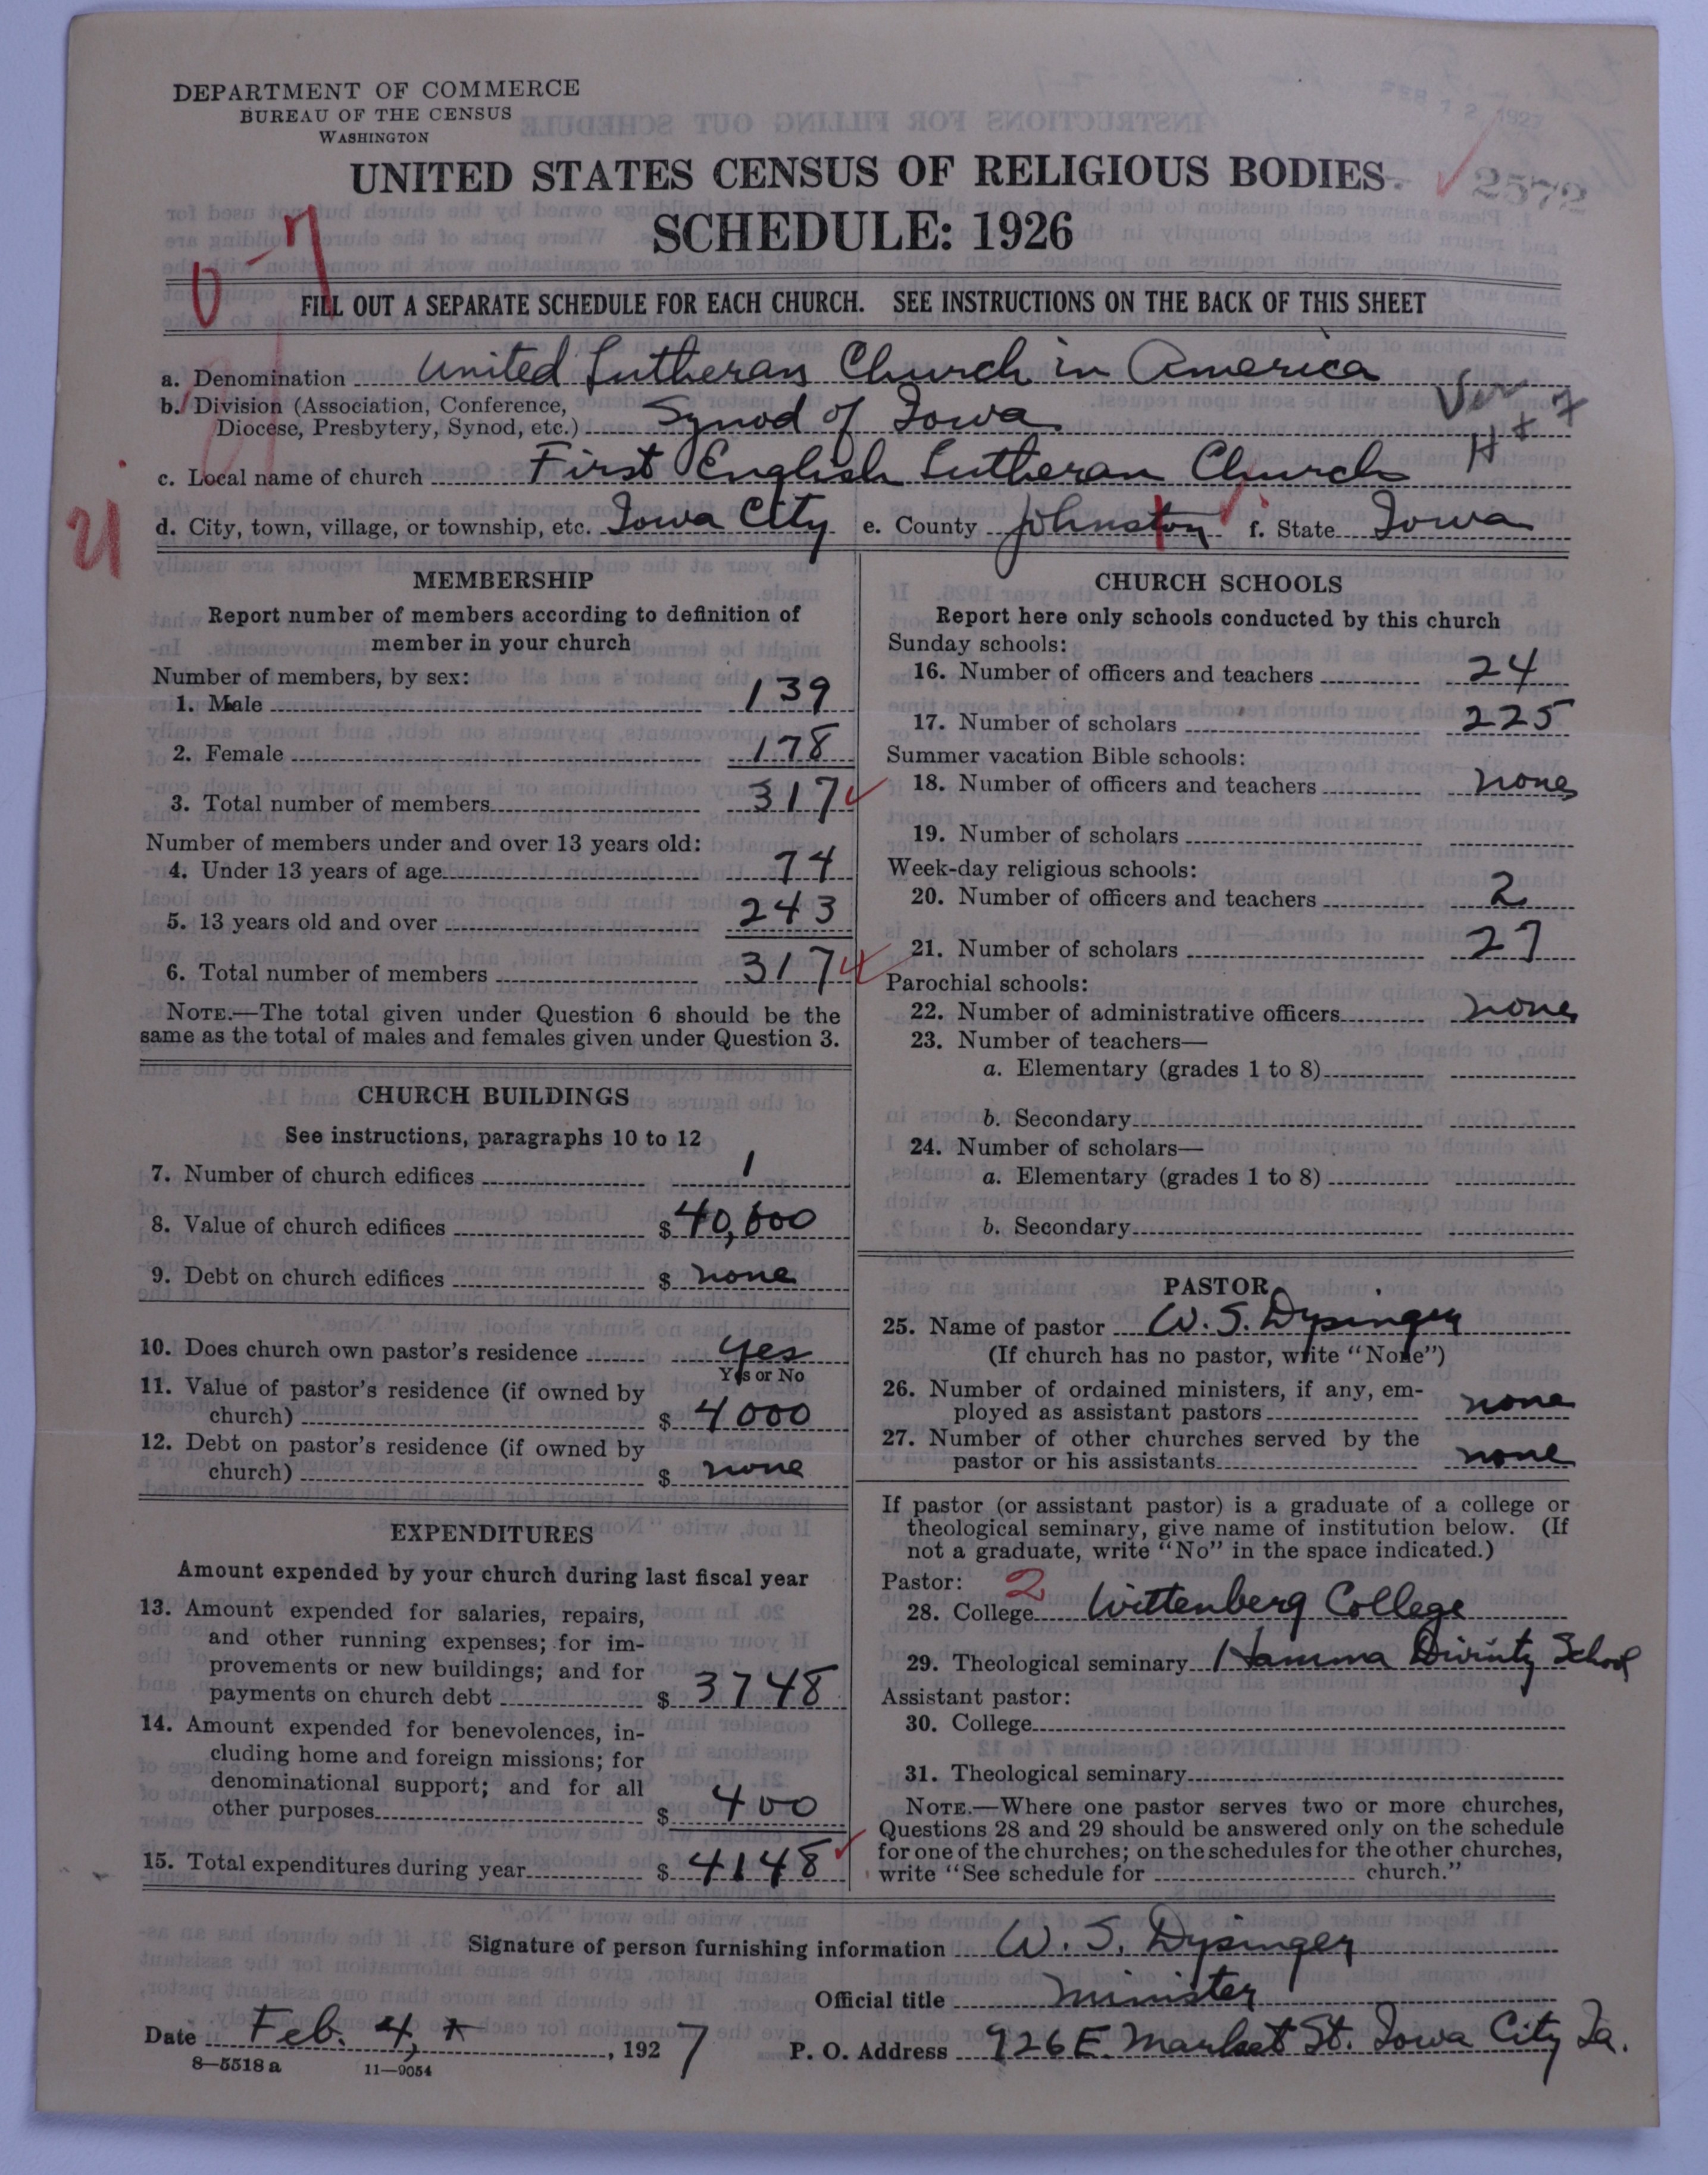 DEPARTMENT OF COMMERCE
BUREAU OF THE CENSUS
WASHINGTON
UNITED STATES CENSUS OF RELIGIOUS BODIES
2572
SCHEDULE: 1926
FILL OUT A SEPARATE SCHEDULE FOR EACH CHURCH. SEE INSTRUCTIONS ON THE BACK OF THIS SHEET
a. Denomination United Lutheran Church in America
b. Division (Association, Conference, Diocese, Presbytery, Synod, etc.) Synod of Iowa
c. Local name of church First English Lutheran Church
21
d. City, town, village, or township, etc. Iowa City e. County Johnston f. State Iowa
MEMBERSHIP
Report number of members according to definition of
member in your church
Number of members, by sex:
1. Male 139
2. Female 178
3. Total number of members 317
Number of members under and over 13 years old:
4. Under 13 years of age 74
5. 13 years old and over 243
6. Total number of members 317
NOTE.—The total given under Question 6 should be the
same as the total of males and females given under Question 3.
CHURCH BUILDINGS
See instructions, paragraphs 10 to 12
7. Number of church edifices 1
8. Value of church edifices $ 40,000
9. Debt on church edifices $ none
10. Does church own pastor's residence yes
Yes or No
11. Value of pastor's residence (if owned by
church) $ 4000
12. Debt on pastor's residence (if owned by
church) $ none
EXPENDITURES
Amount expended by your church during last fiscal year
13. Amount expended for salaries, repairs,
and other running expenses; for im-
provements or new buildings; and for
payments on church debt $ 3748
14. Amount expended for benevolences, in-
cluding home and foreign missions; for
denominational support; and for all
other purposes $ 400
15. Total expenditures during year $ 4148
CHURCH SCHOOLS
Report here only schools conducted by this church
Sunday schools:
16. Number of officers and teachers 24
17. Number of scholars 225
Summer vacation Bible schools:
18. Number of officers and teachers none
19. Number of scholars
Week-day religious schools:
20. Number of officers and teachers 2
21. Number of scholars 27
Parochial schools:
22. Number of administrative officers none
23. Number of teachers—
a. Elementary (grades 1 to 8)
b. Secondary
24. Number of scholars—
a. Elementary (grades 1 to 8)
b. Secondary
PASTOR
25. Name of pastor W. S. Dysinger
(If church has no pastor, write "None")
26. Number of ordained ministers, if any, em-
ployed as assistant pastors none
27. Number of other churches served by the
pastor or his assistants none
If pastor (or assistant pastor) is a graduate of a college or
theological seminary, give name of institution below. (If
not a graduate, write "No" in the space indicated.)
Pastor: 2
28. College Wittenberg College
29. Theological seminary Hamma Divinity School
Assistant pastor:
30. College
31. Theological seminary
NOTE.—Where one pastor serves two or more churches,
Questions 28 and 29 should be answered only on the schedule
for one of the churches; on the schedules for the other churches,
write "See schedule for church."
Signature of person furnishing information W. S. Dysinger
Official title minister
Date Feb. 4, 1927 P. O. Address 926 E. Market St. Iowa City Ia.
8—5518 a 11—9054